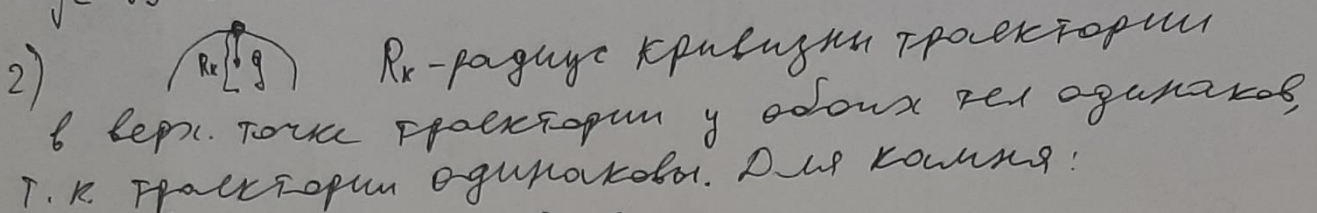 2) Rк g Rк - радиус кривизны траектории
в верх. точке траектории у обоих тел одинаков,
т. к. траектории одинаковы. Для камня: